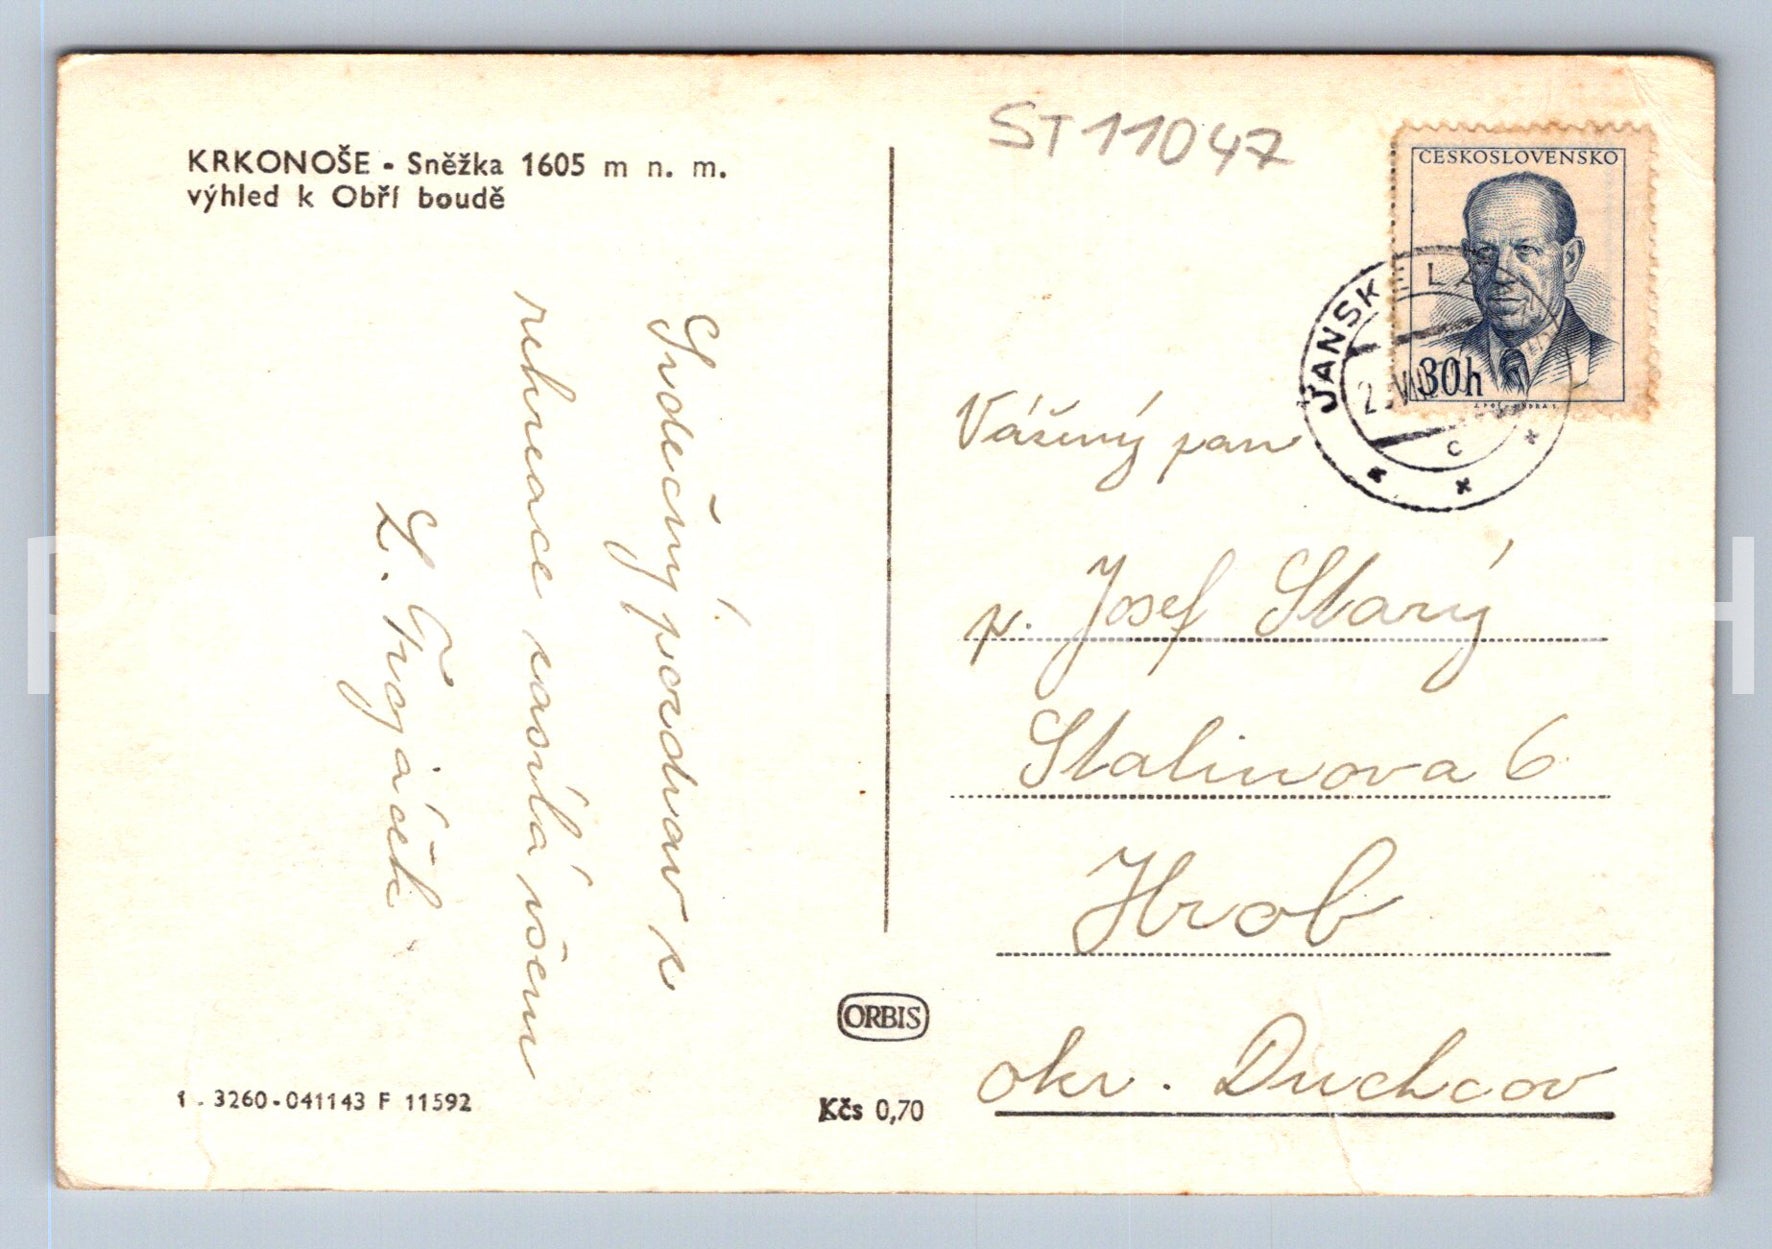 KRKONOŠE - Sněžka 1605 m n. m.
výhled k Obří boudě
ST11047
ČESKOSLOVENSKO
30h
JANSKÉ LÁZ
C
Srdečný pozdrav z
rekreace zasílá všem
Z. Trojáček
Vážený pan
p. Josef Starý
Stalinova 6
Hrob
okr. Duchcov
ORBIS
Kčs 0,70
1 - 3260-041143 F 11592